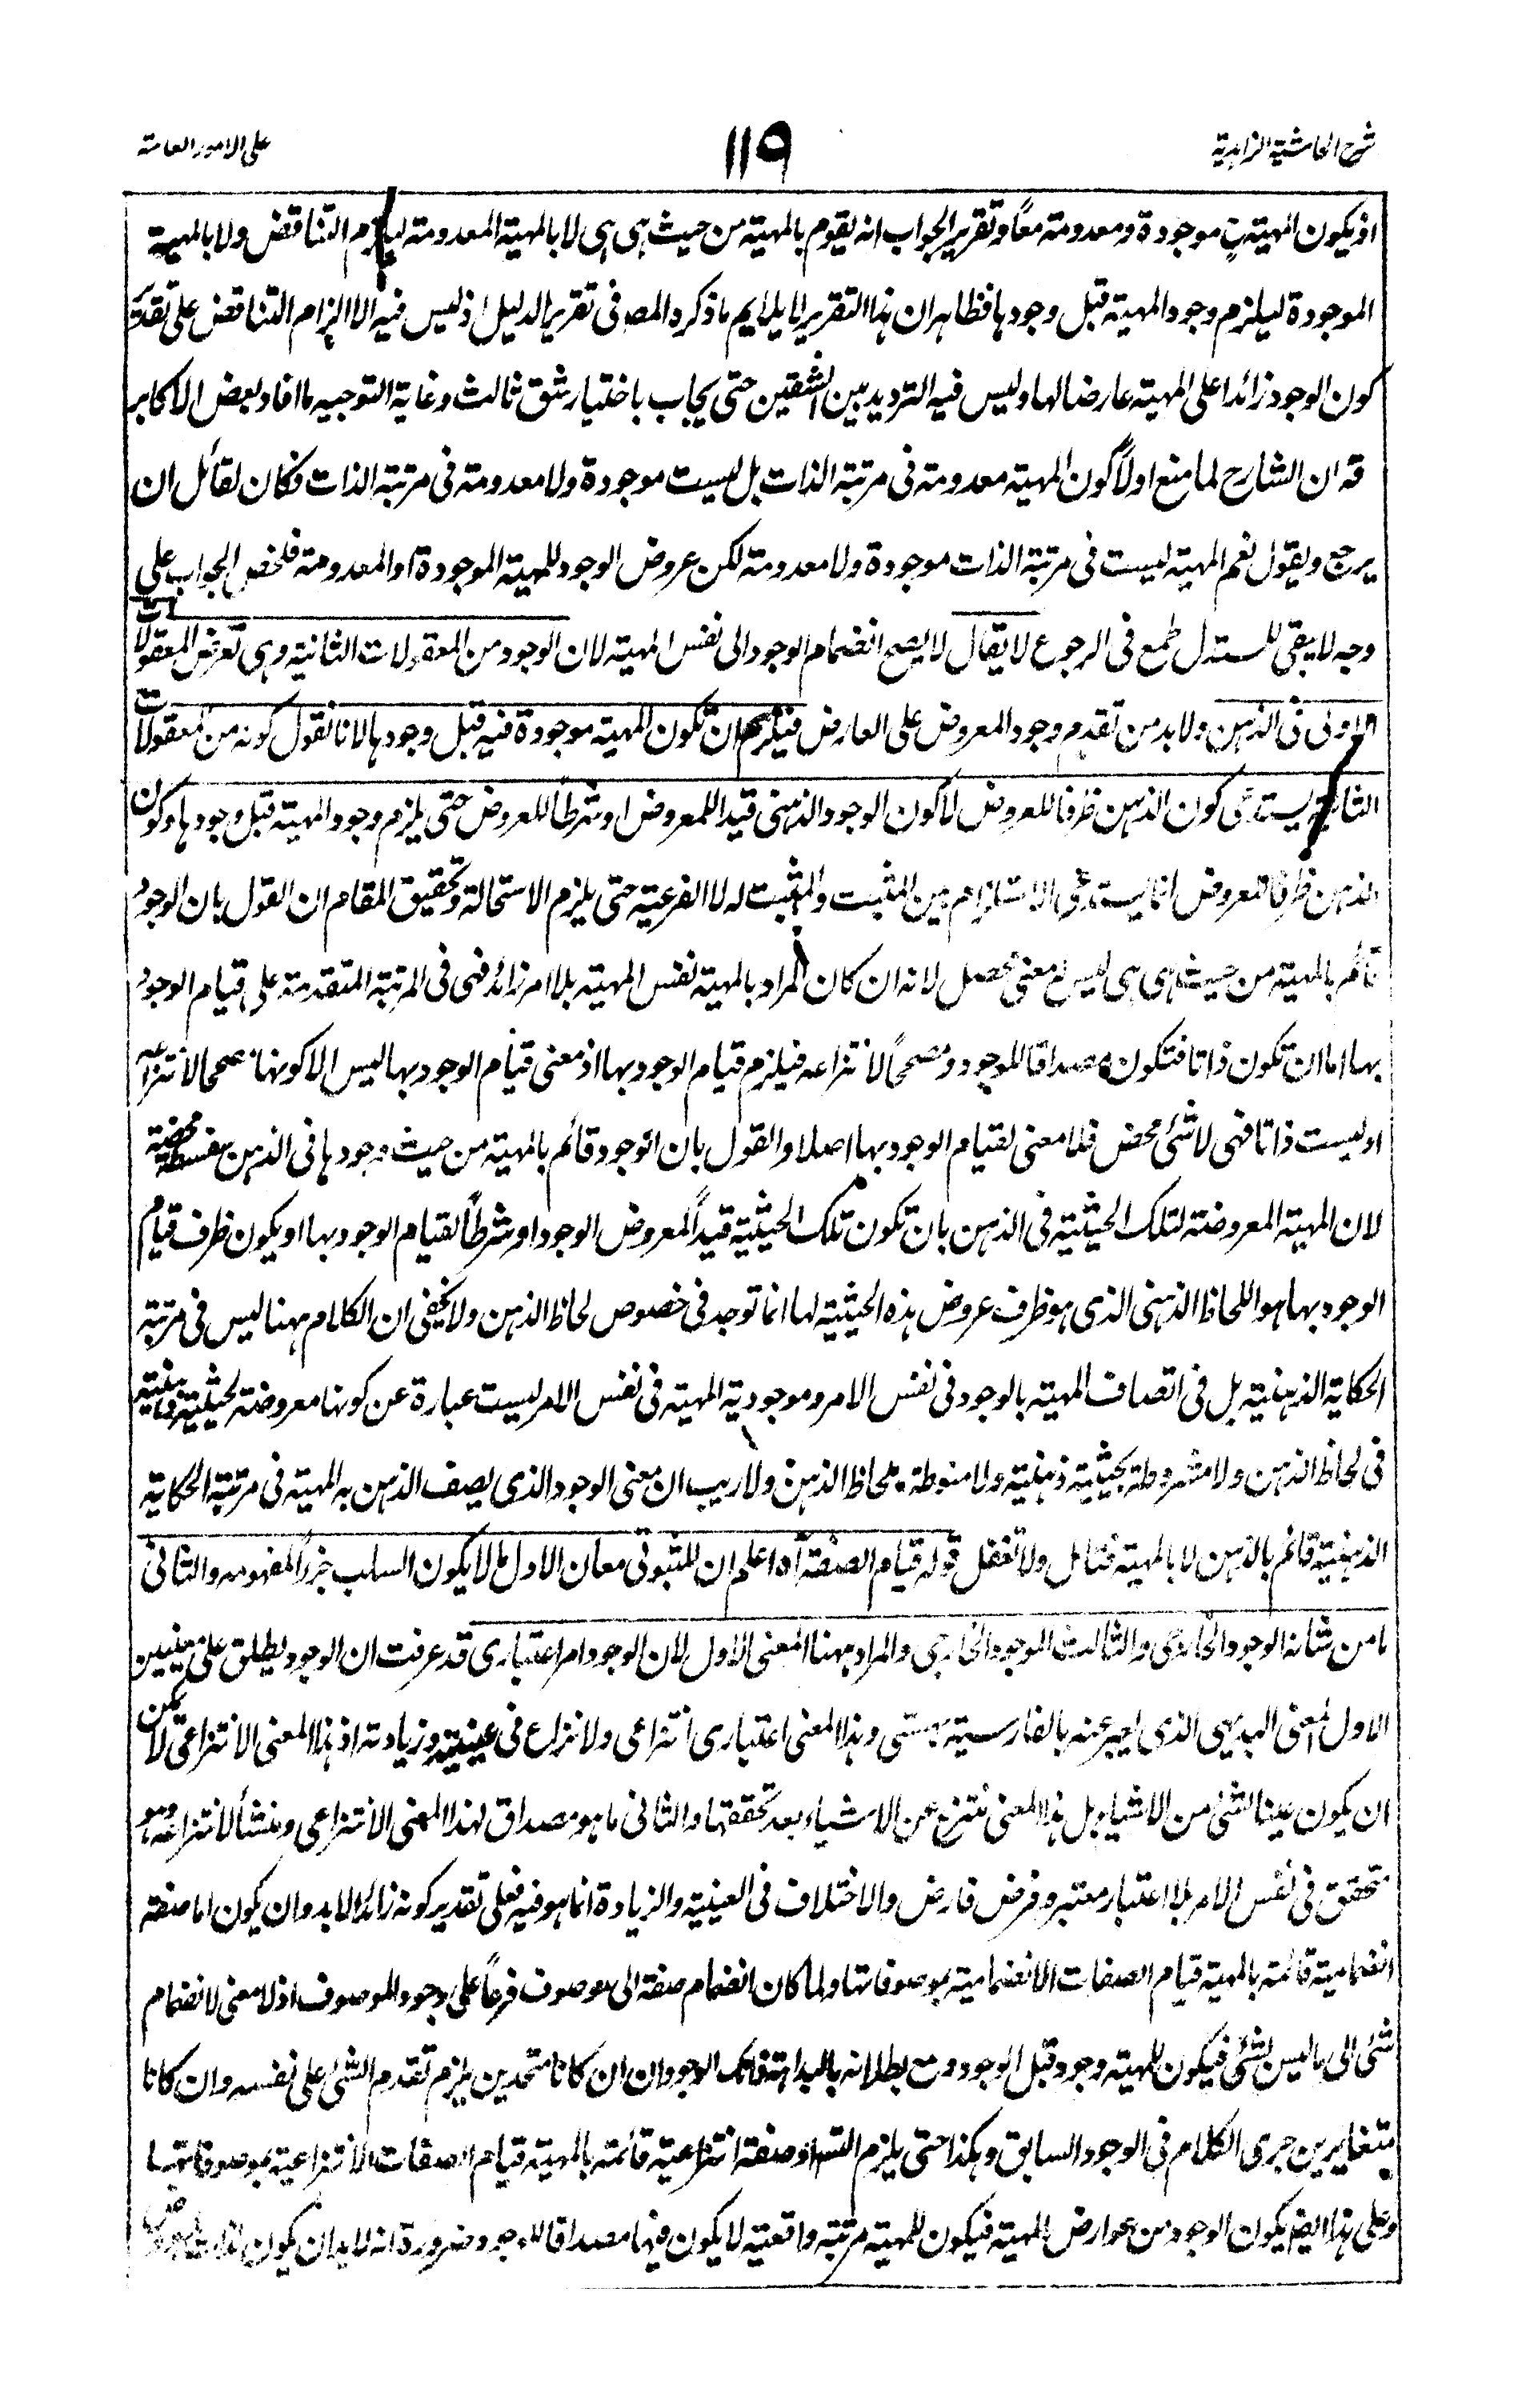 شرح الحاشية الزاهدية
١١٩
على الامور العامة
اذ يكون المهية ح موجودة ومعدومة معاً وتقرير الجواب انه يقوم بالمهية من حيث هى هى لا بالمهية المعدومة ليلزم التناقض ولا بالمهية
الموجودة ليلزم وجود المهية قبل وجودها فظاهر ان هذا التقرير لا يلايم ما ذكره المص فى تقرير الدليل اذ ليس فيه الا الزام التناقض على تقدير
كون الوجود زائدا على المهية عارضا لها وليس فيه الترديد بين الشقين حتى يجاب باختيار شق ثالث وغاية التوجيه ما افاد بعض الاكابر
قه ان الشارح لما منع اولاً كون المهية معدومة فى مرتبة الذات بل ليست موجودة ولا معدومة فى مرتبة الذات فكان لقائل ان
يرجع ويقول نعم المهية ليست فى مرتبة الذات موجودة ولا معدومة لكن عروض الوجود للمهية الموجودة او المعدومة فلخص الجواب على
وجه لا يبقى للمستدل طمع فى الرجوع لا يقال لا يصح انضمام الوجود الى نفس المهية لان الوجود من المعقولات الثانية وهى تعرض المعقولات
الاولى فى الذهن ولا بد من تقدم وجود المعروض على العارض فيلزم ان تكون المهية موجودة فيه قبل وجودها لانا نقول كونه من المعقولات
الثانية يستدعى كون الذهن ظرفا للعروض لا كون الوجود الذهنى قيدا للمعروض او شرطاً للعروض حتى يلزم وجود المهية قبل وجودها وكون
الذهن ظرفا للعروض انما يستدعى الاستلزام بين المثبت والمثبت له لا الفرعية حتى يلزم الاستحالة وتحقيق المقام ان القول بان الوجود
قائم بالمهية من حيث هى هى ليس له معنى محصل لانه ان كان المراد بالمهية نفس المهية بلا امر زائد فهى فى المرتبة المتقدمة على قيام الوجود
بها اما ان تكون ذاتا فتكون مصداقا للوجود ومصححاً لانتزاعه فيلزم قيام الوجود بها اذ معنى قيام الوجود بها ليس الا كونها مصححا لانتزاعه
او ليست ذاتا فهى لا شئ محض فلا معنى لقيام الوجود بها اصلا والقول بان الوجود قائم بالمهية من حيث وجودها فى الذهن سفسطة محضة
لان المهية المعروضة لتلك الحيثية فى الذهن بان تكون تلك الحيثية قيداً لمعروض الوجود او شرطاً لقيام الوجود بها او يكون ظرف قيام
الوجود بها هو اللحاظ الذهنى الذى هو ظرف عروض هذه الحيثية لها انما توجد فى خصوص لحاظ الذهن ولا يخفى ان الكلام ههنا ليس فى مرتبة
الحكاية الذهنية بل فى اتصاف المهية بالوجود فى نفس الامر وموجودية المهية فى نفس الامر ليست عبارة عن كونها معروضة لحيثية ذهنية
فى لحاظ الذهن ولا مشروطة بحيثية ذهنية ولا منوطة بلحاظ الذهن ولا ريب ان معنى الوجود الذى يصف الذهن به المهية فى مرتبة الحكاية
الذهنية قائم بالذهن لا بالمهية فتامل ولا تغفل قوله قيام الصفة آه اعلم ان للثبوتى معان الاول ما لا يكون السلب جزءً لمفهومه والثانى
ما من شانه الوجود الخارجى والثالث الموجود الخارجى والمراد ههنا المعنى الاول لان الوجود امر اعتبارى قد عرفت ان الوجود يطلق على معنيين
الاول المعنى البديهى الذى يعبر عنه بالفارسية بهستى وهذا المعنى اعتبارى انتزاعى ولا نزاع فى عينيته وزيادته اذ هذا المعنى الانتزاعى لا يمكن
ان يكون عينا لشئ من الاشياء بل هذا المعنى منتزع عن الاشياء بعد تحققها والثانى ما هو مصداق لهذا المعنى الانتزاعى ومنشأ لانتزاعه وهو
متحقق فى نفس الامر بلا اعتبار معتبر وفرض فارض والاختلاف فى العينية والزيادة انما هو فيه فعلى تقدير كونه زائدا لا بد وان يكون اما صفة
انضمامية قائمة بالمهية قيام الصفات الانضمامية بموصوفاتها ولما كان انضمام صفة الى موصوف فرعاً على وجود الموصوف اذ لا معنى لانضمام
شئ الى ما ليس بشئ فيكون للمهية وجود قبل الوجود ومع بطلانه بالبداهة فذانك الوجودان ان كانا متحدين يلزم تقدم الشئ على نفسه وان كانا
متغايرين جرى الكلام فى الوجود السابق وهكذا حتى يلزم التسلسل او صفة انتزاعية قائمة بالمهية قيام الصفات الانتزاعية بموصوفاتها
وعلى هذا ايضا يكون الوجود من عوارض المهية فيكون للمهية مرتبة واقعية لا يكون فيها مصداقا للوجود ضرورة انه لا بد ان يكون